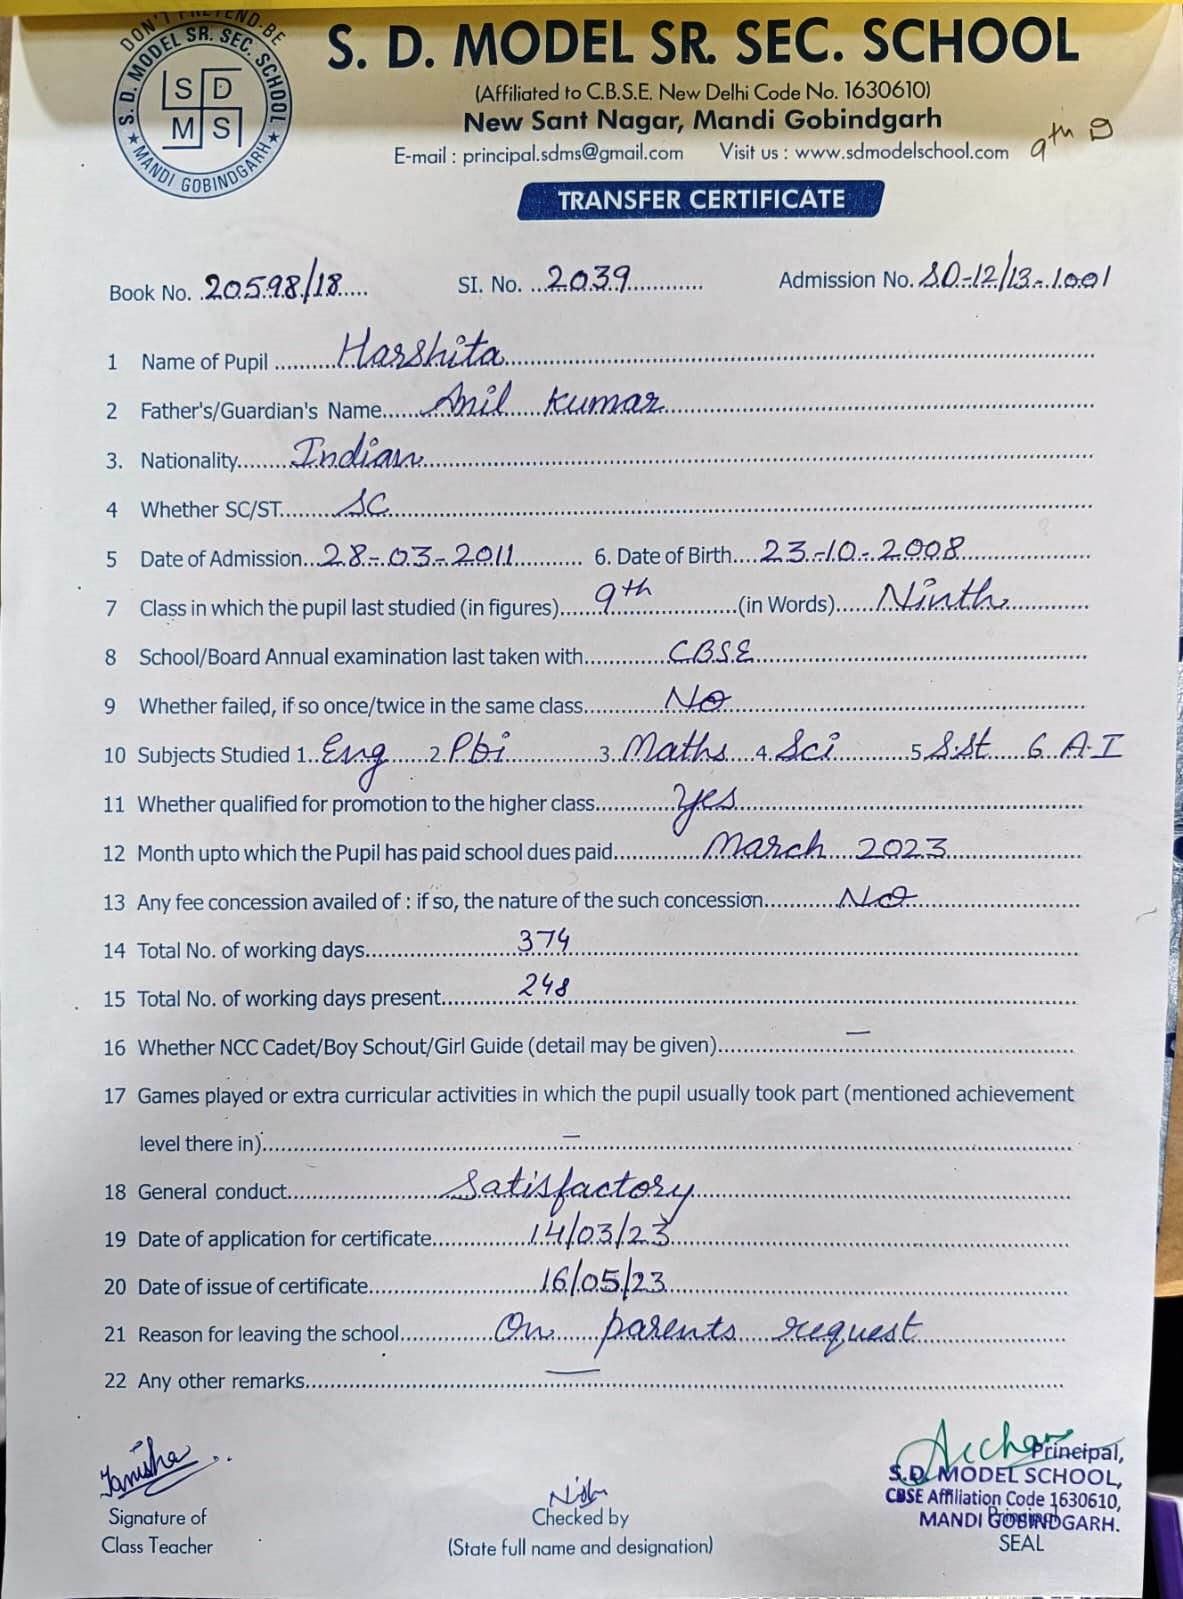 DON'T PRETEND-BE
S. D. MODEL SR. SEC. SCHOOL
S D
M S
★ MANDI GOBINDGARH ★
S. D. MODEL SR. SEC. SCHOOL
(Affiliated to C.B.S.E. New Delhi Code No. 1630610)
New Sant Nagar, Mandi Gobindgarh
E-mail : principal.sdms@gmail.com Visit us : www.sdmodelschool.com
9th D
TRANSFER CERTIFICATE
Book No. 20598/18 SI. No. 2039 Admission No. SD-12/13-1001
1 Name of Pupil Harshita
2 Father's/Guardian's Name Anil Kumar
3. Nationality Indian
4 Whether SC/ST SC
5 Date of Admission 28-03-2011 6. Date of Birth 23-10-2008
7 Class in which the pupil last studied (in figures) 9th (in Words) Ninth
8 School/Board Annual examination last taken with CBSE
9 Whether failed, if so once/twice in the same class No
10 Subjects Studied 1. Eng 2. Pbi 3. Maths 4. Sci 5 S.St 6. A.I
11 Whether qualified for promotion to the higher class Yes
12 Month upto which the Pupil has paid school dues paid March 2023
13 Any fee concession availed of : if so, the nature of the such concession No
14 Total No. of working days 374
15 Total No. of working days present 248
16 Whether NCC Cadet/Boy Schout/Girl Guide (detail may be given) —
17 Games played or extra curricular activities in which the pupil usually took part (mentioned achievement
level there in) —
18 General conduct Satisfactory
19 Date of application for certificate 14/03/23
20 Date of issue of certificate 16/05/23
21 Reason for leaving the school On parents request
22 Any other remarks —
Tanisha
Signature of
Class Teacher
Checked by
(State full name and designation)
Principal,
S.D. MODEL SCHOOL,
CBSE Affiliation Code 1630610,
MANDI GOBINDGARH.
Principal
SEAL